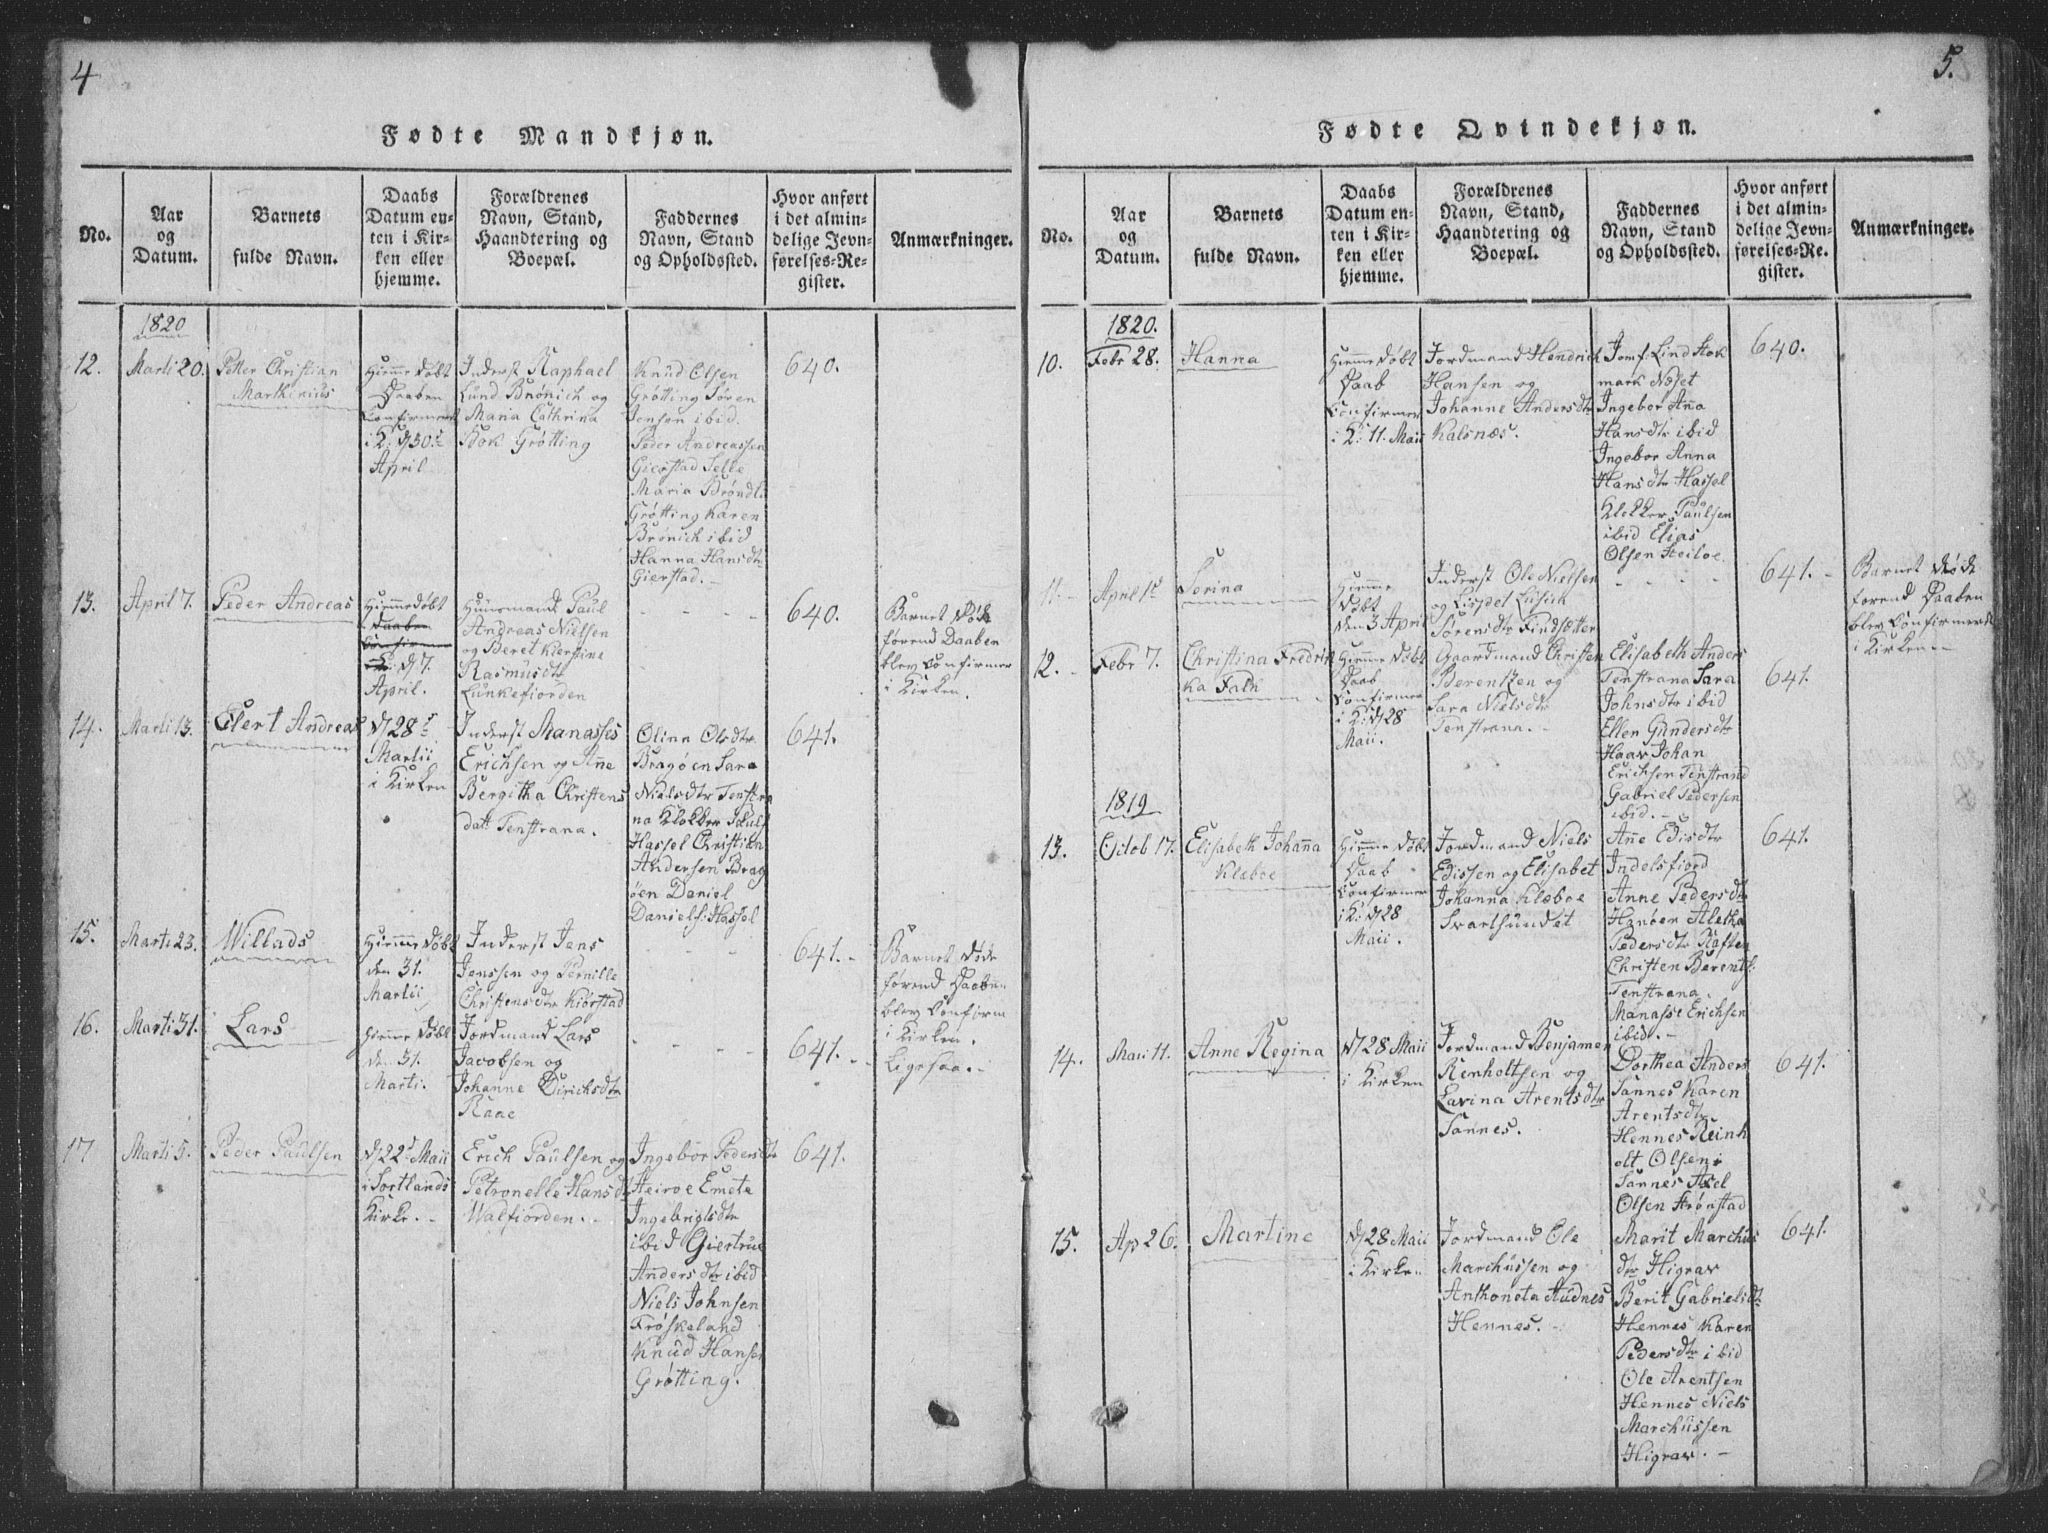 4
Fødte Mandkjøn.
No.
Aar
og
Datum.
Barnets
fulde Navn.
Daabs
Datum en-
ten i Kir-
ken eller
hjemme.
Forældrenes
Navn, Stand,
Haandtering og
Boepæl.
Faddernes
Navn, Stand
og Opholdssted.
Hvor anført
i det almin-
delige Jevn-
førelses-Re-
gister.
Anmærkninger.
1820
12.
Marti 20.
Petter Christian
Marthinius
Hiemmedøbt
Daaben
Confirmert
i K: d 30te
April
Inderst Raphael
Lund Brønich og
Maria Cathrina
Bok Grøtting
Knud Olsen
Grøtting Søren
Jensen ibid.
Peder Andreassen
Gierstad Selle
Maria Brøndl:
Grøtting Karen
Brønich ibid
Hanna Hansdtr
Gierstad. -
640.
13.
April 7.
Peder Andreas
Hiemmedøbt
Daaben
Confirmer
i K: d 7.
April.
Huusmand Paul
Andreas Nielsen
og Beret Kierstine
Rasmusdtr
Lunkefiorden
- - - -
640.
Barnet døde
førend Daaben
blev Confirmer
i Kirken.
14.
Marti 13.
Elert Andreas
d 28de
Martii
i Kirken
Inderst Manasses
Erichsen og Anne
Bergitha Christens
datt Tenstrana.
Olina Olsdtr
Bragøen Sara
Nielsdtr Tenstra
na Klokker Paul
Hassel Christian
Andersen Brag
øen Daniel
Daniels: Hassel
641.
15.
Marti 23.
Willads
Hiemmedøbt
den 31.
Martii
Inderst Jens
Jenssen og Pernille
Christensdtr Kiørstad
- - - -
641. -
Barnet døde
førend Daaben
blev Confirm
i Kirken.
16.
Marti 31.
Lars
Hiemmedøbt
den 31.
Marti.
Jordmand Lars
Jacobsen og
Johanne Dirichsdtr
Raae
- - - -
641. -
Ligesaa. -
17
Marti 5.
Peder Paulsen
d 22d Maii
i Sortlands
Kirke. -
Erich Paulsen og
Petronelle Hansdtr
Walfiorden. -
Ingebor Pedersdtr
Heiroe Emete
Ingebrigtsdtr
ibid Giertrue
Andersdtr ibid
Niels Johnsen
Frøskeland
Knud Hansen
Grøtting.
641.
5.
Fødte Qvindekjøn.
No.
Aar
og
Datum.
Barnets
fulde Navn.
Daabs
Datum en-
ten i Kir-
ken eller
hjemme.
Forældrenes
Navn, Stand,
Haandtering og
Boepæl.
Faddernes
Navn, Stand
og Opholdssted.
Hvor anført
i det almin-
delige Jevn-
førelses-Re-
gister.
Anmærkninger.
1820.
10.
Febr 28.
Hanna
Hiemmedøbt
Daab
Confirmer
i K: 11. Maii
Jordmand Hendrich
Hansen og
Johanne Andersdtr
Kalsnæs.
Jomf: Lind Stok
mark Næset
Ingebor Ana
Hansdtr ibid
Ingebor Anna
Hansdtr Hassel
Klokker Paulsen
ibid Elias
Olsen Steiloe
640.
11. -
April 1st
Serina
Hiemme
døbt
den 3 April
Inderst Ole Nielsen
og Lispet Lusick
Sørensdtr Findsætter
- - - -
641. -
Barnet døde
førend Daaben
blev Confirmeret
i Kirken. -
12. -
Febr 7.
Christina Fredrik
ka Falk
Hiemmedøbt
Daab
Confirmer
i K: d 28
Maii.
Gaardmand Christen
Berentsen og
Sara Nielsdtr
Tenstrana. -
Elisabeth Anders
Tenstrana Sara
Johnsdtr ibid
Ellen Gundersdtr
Haav Johan
Erichsen Tenstrand
Gabriel Pedersen
ibid. -
641.
1819
13.
Octob 17.
Elisabeth Johanna
Klæboe
Hiemmedøbt
Daab
Confirmer
i K: d 28
Maii.
Jordmand Niels
Edissen og Elisabet
Johanna Klæboe
Svartsundet
Anne Edisdtr
Indelsfiord
Anne Pedersdtr
Hanøen Aletha
Pedersdtr Raften
Christen Berents:
Tenstrana.
Manasse Erichsen
ibid. -
641.
14.
Maii 11.
Anne Regina
d 28 Maii
i Kirken
Jordmand Benjamen
Renholtsen og
Lavina Arentsdtr
Sannes.
Dorthea Anders
Sannes Karen
Arentsdtr
Hennes Reinh
olt Olsen
Sannes Axel
Olsen Strønstad
641.
15.
Ap 26.
Martine
d 28 Maii
i Kirken
Jordmand Ole
Marchussen og
Anthoneta Audnes
Hennes. -
Marit Marchus
dtr Higrav
Berit Gabrielsdtr
Hennes Karen
Pedersdtr ibid
Ole Arentsen
Hennes Niels
Marchussen
Higrav. -
641.